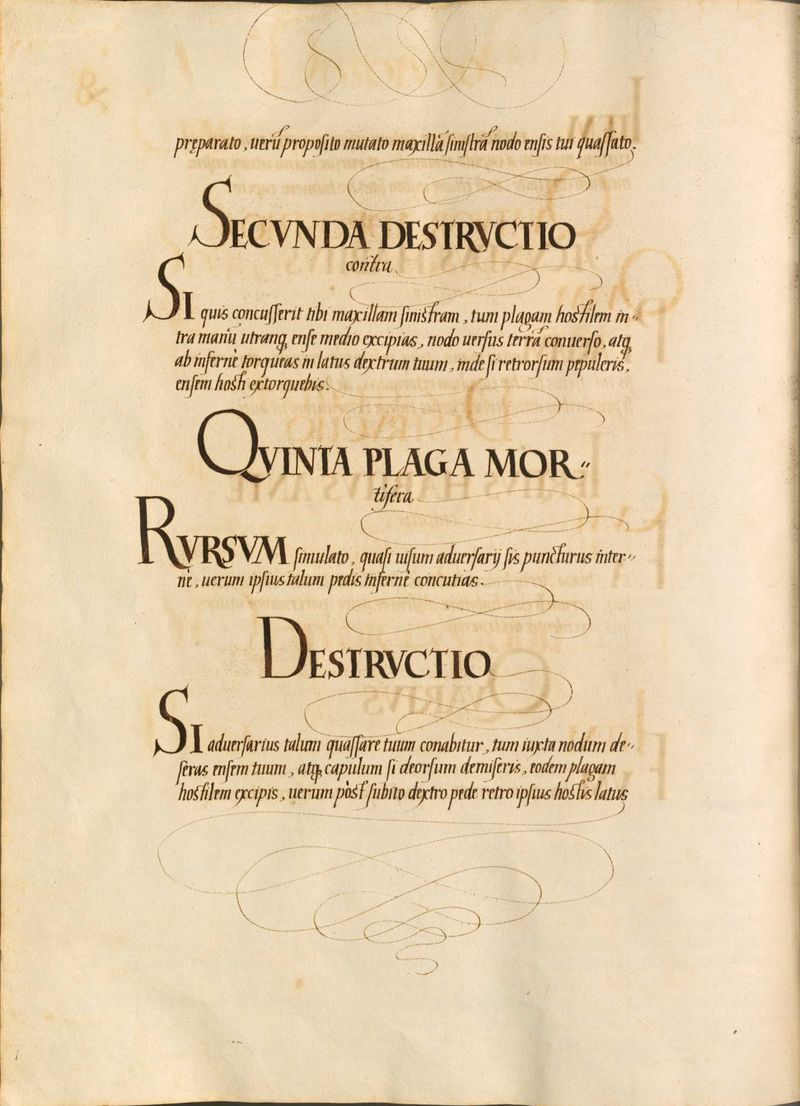 pręparato, uerũ proposito mutato maxillã sinistrã nodo ensis tui quassato.
SECVNDA DESTRVCTIO
contra
SI quis concusserit tibi maxillam sinistram, tum plagam hostilem in-
tra manũ utranq; ense medio excipias, nodo uersus terrã conuerso, atq;
ab infernè torqueas in latus dextrum tuum, inde si retrorsum pepuleris,
ensem hosti extorquebis.
QVINTA PLAGA MOR-
tifera
RVRSVM simulato, quasi uisum aduersarij sis puncturus inter-
nè, uerum ipsius talum pedis infernè concutias.
DESTRVCTIO
SI aduersarius talum quassare tuum conabitur, tum iuxta nodum de-
feras ensem tuum, atq; capulum si deorsum demiseris, eodem plagam
hostilem excipis, uerum pòst subito dextro pede retro ipsius hostis latus